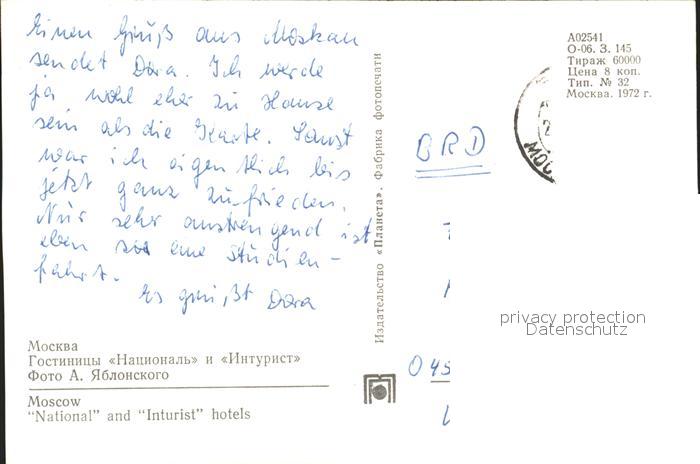 Einen Gruß aus Moskau
sendet Dora. Ich werde
ja wohl eher zu Hause
sein als die Karte. Sonst
war ich eigentlich bis
jetzt ganz zufrieden.
Nur sehr anstrengend ist
eben so eine Studien-
fahrt.
Es grüßt Dora
Москва
Гостиницы «Националь» и «Интурист»
Фото А. Яблонского
Moscow
"National" and "Inturist" hotels
Издательство «Планета». Фабрика фотопечати
А02541
О-06. З. 145
Тираж 60000
Цена 8 коп.
Тип. № 32
Москва. 1972 г.
МОС
BRD
045
privacy protection
Datenschutz